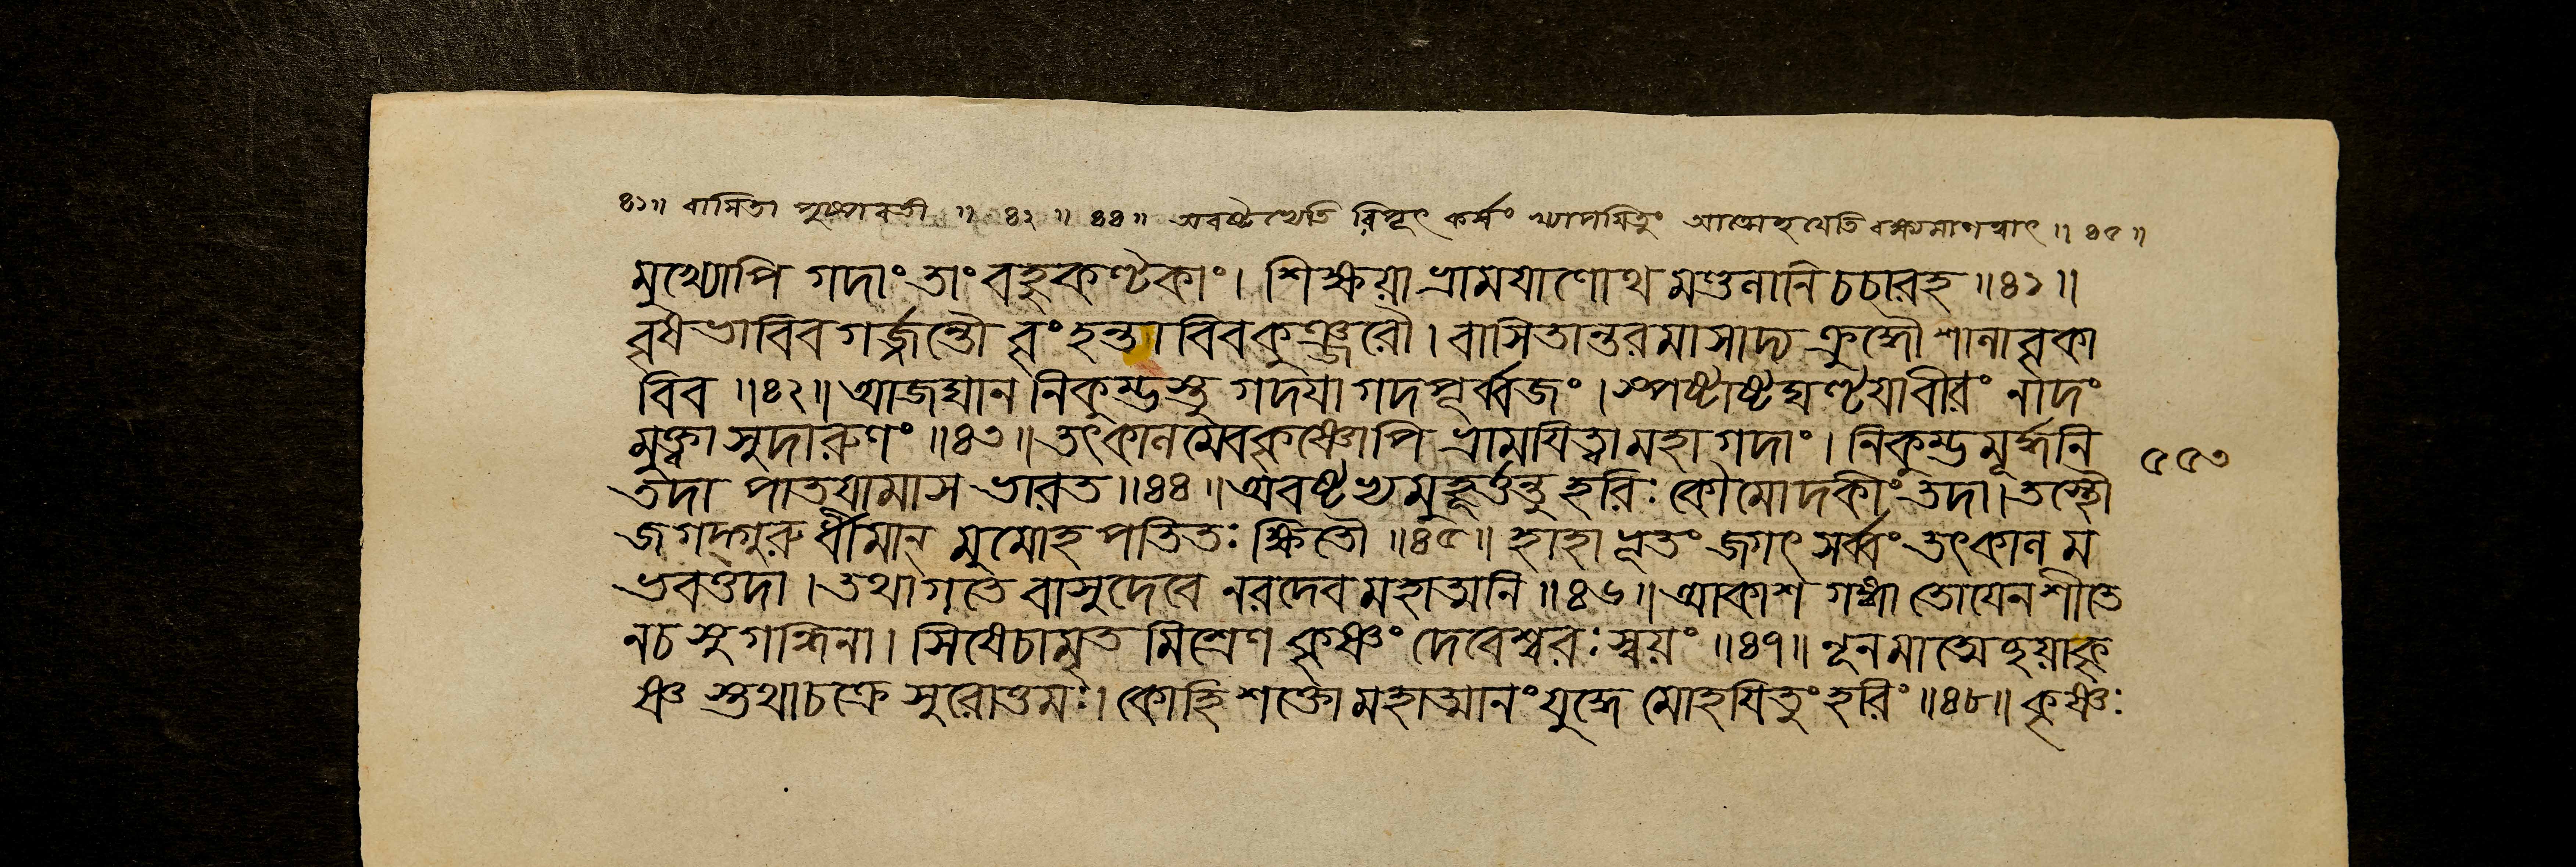 ৪১॥ বাসিতা পুষ্পবতী ॥ ৪২ ॥ ৪৪ ॥ অবষ্টভ্যেতি রিপূৎকর্ষং খ্যাপয়িতুং আত্মেছয়েতি বক্ষ্যমাণত্বাৎ ॥ ৪৫ ॥
মুখ্যোপি গদাং তাং বহুকণ্টকাং। শিক্ষয়া ভ্রাময়াণোথ মণ্ডলানি চচারহ ॥৪১॥
বৃষভাবিব গর্জ্জন্তৌ বৃংহন্তাবিবকুঞ্জরৌ। বাসিতান্তরমাসাদ্য ক্রুদ্ধৌ শালাবৃকা
বিব ॥৪২॥ আজঘান নিকুম্ভস্তু গদয়া গদপূর্ব্বজং। স্পষ্টাষ্টঘণ্টয়াবীরং নাদং
মুক্ত্বা সুদারুণং ॥৪৩॥ তৎকালমেবকৃষ্ণোপি ভ্রাময়িত্বা মহাগদাং। নিকুম্ভমূর্দ্ধনি
৫৫৩
তদা পাতয়ামাস ভারত ॥৪৪॥ অবষ্টভ্য মুহূর্ত্তন্তু হরিঃ কৌমোদকীং তদা। তস্থৌ
জগদ্গুরুর্ধীমান্ মুমোহ পতিতঃ ক্ষিতৌ ॥৪৫॥ হাহাভূতং জগৎ সর্ব্বং তৎকালম
ভবত্তদা। তথাগতে বাসুদেবে নরদেব মহাত্মনি ॥৪৬॥ আকাশ গঙ্গা তোয়েন শীতে
নচ সুগন্ধিনা। সিষেচামৃত মিশ্রেণ কৃষ্ণং দেবেশ্বরঃ স্বয়ং ॥৪৭॥ নূনমাত্মেছয়াকৃ
ষ্ণ স্তথাচক্রে সুরোত্তমঃ। কোহি শক্তো মহাত্মানং যুদ্ধে মোহয়িতুং হরিং ॥৪৮॥ কৃষ্ণঃ